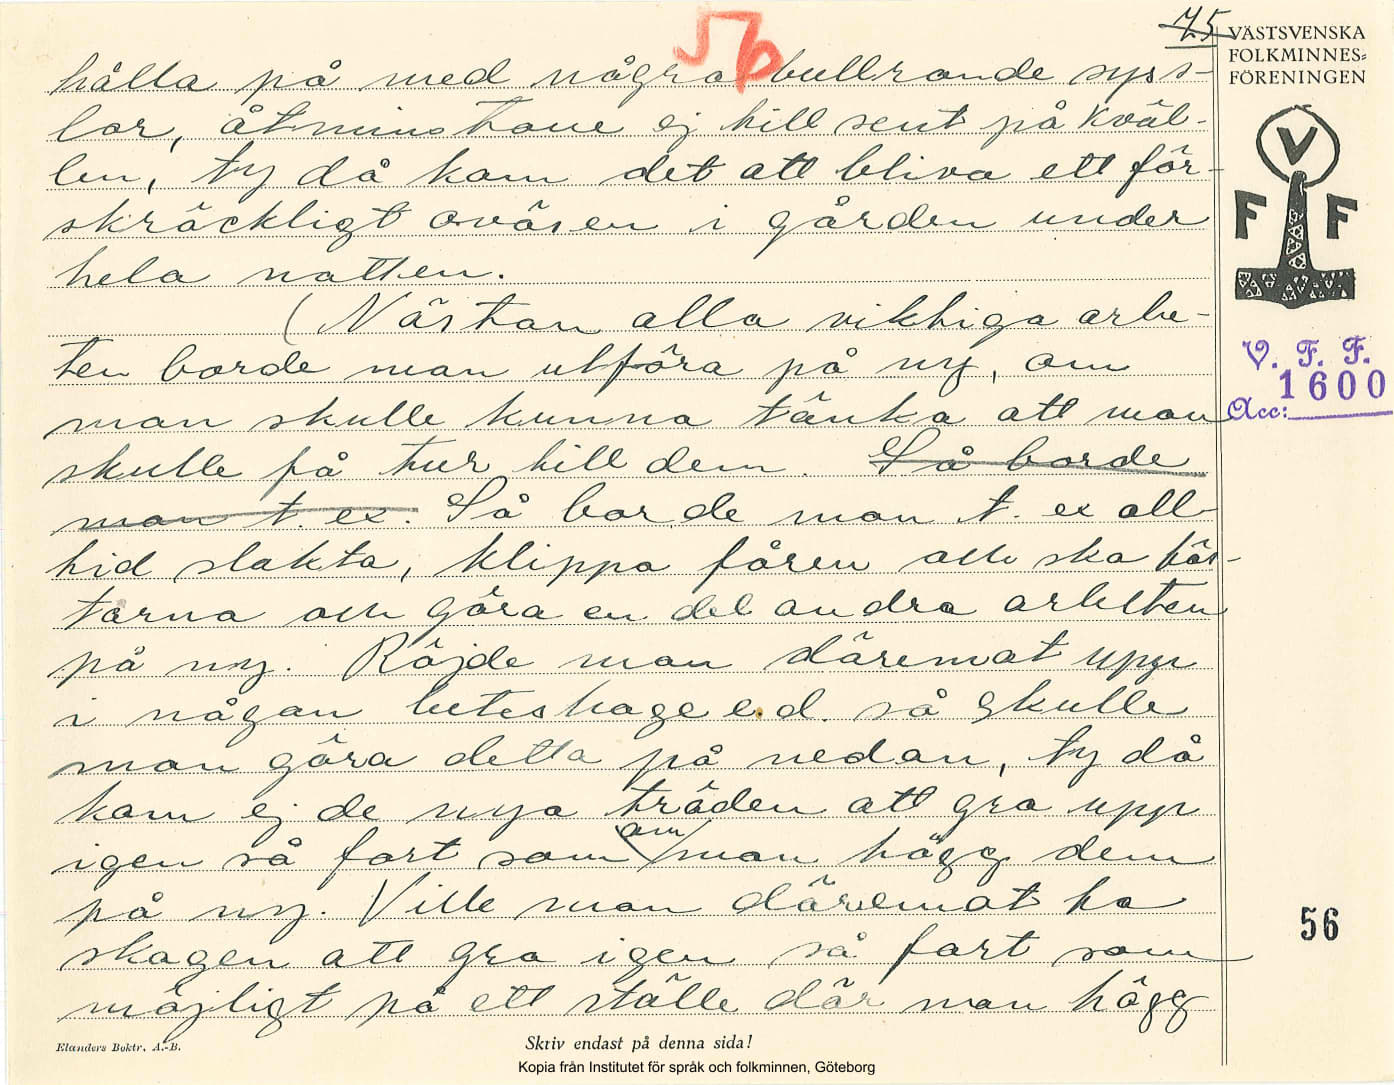 56
75
VÄSTSVENSKA
FOLKMINNES-
FÖRENINGEN
V
F F
V. F. F.
1600
Acc:
hålla på med några bullrande syss-
lor, åtminstone ej till sent på kväl-
len, ty då kom det att bliva ett för-
skräckligt oväsen i gården under
hela natten.
(Nästan alla viktiga arbe-
ten borde man utföra på ny, om
man skulle kunna tänka att man
skulle få tur till dem. Så borde
man t. ex. Så borde man t. ex all-
tid slakta, klippa fåren och sko häs-
tarna och göra en del andra arbeten
på ny. Röjde man däremot upp
i någon beteshage e.d. så skulle
man göra detta på nedan, ty då
kom ej de nya träden att gro upp
igen så fort som om man högg dem
på ny. Ville man däremot ha
skogen att gro igen så fort som
möjligt på ett ställe där man högg
56
Elanders Boktr. A.-B.
Skriv endast på denna sida!
Kopia från Institutet för språk och folkminnen, Göteborg